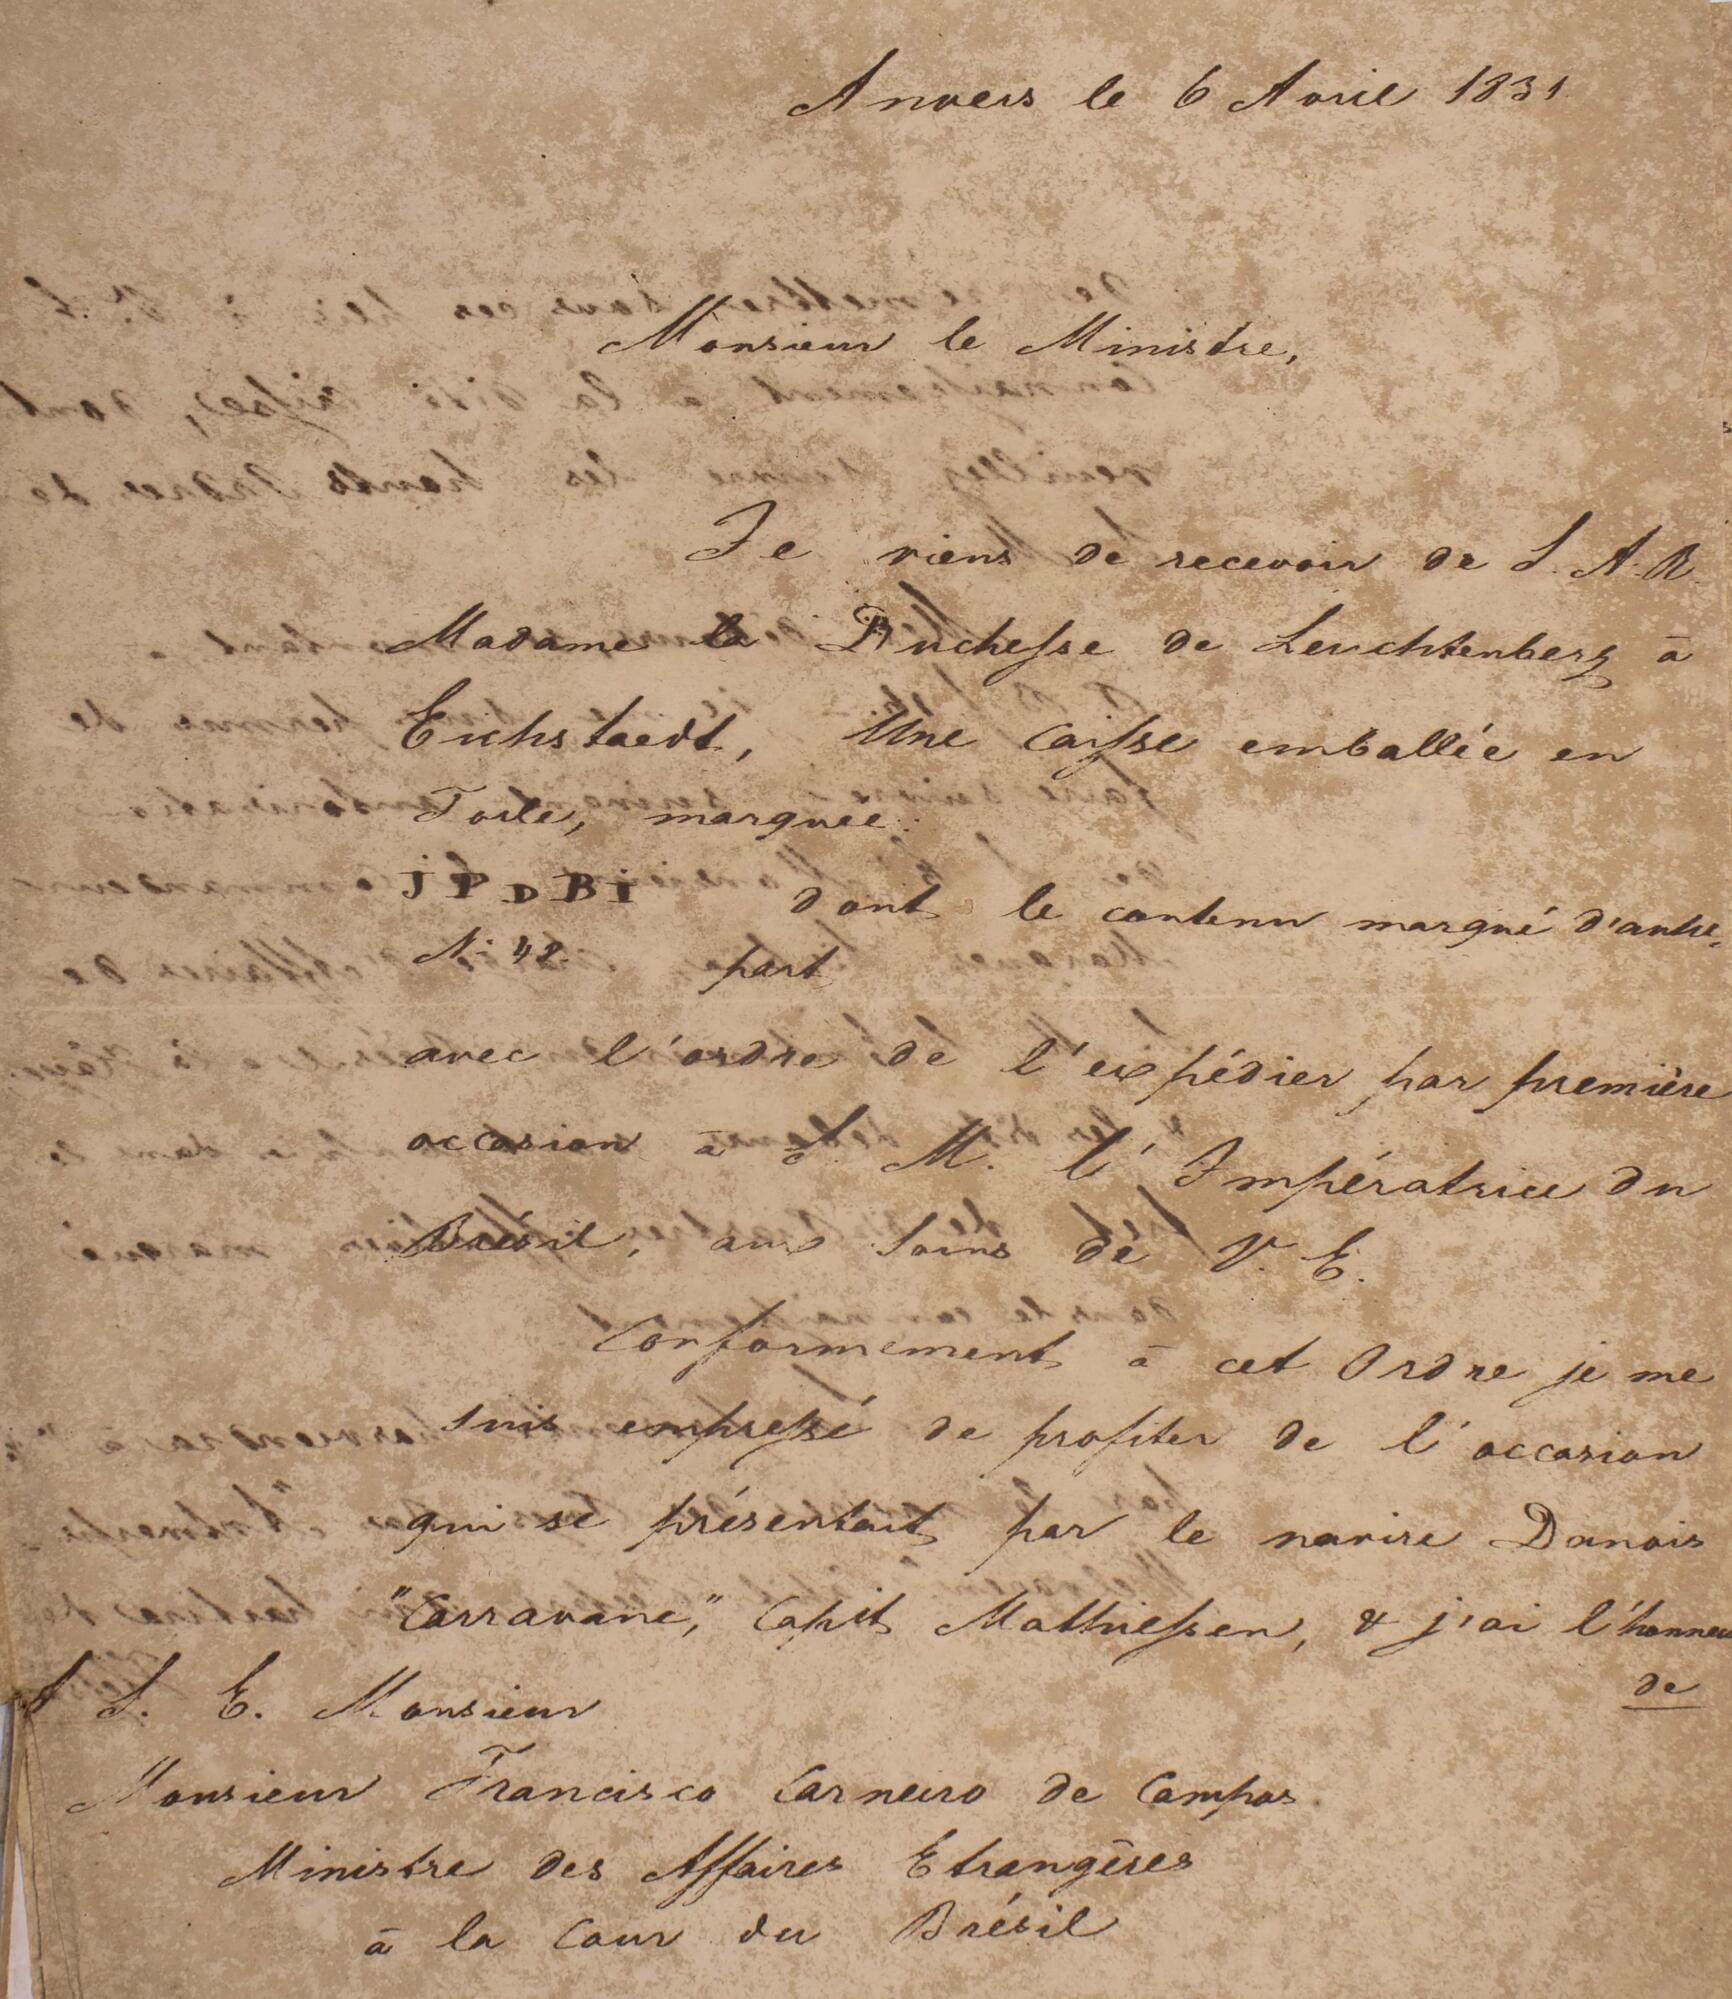 Anvers le 6 Avril 1831
Monsieur le Ministre,
Je viens de recevoir de S. A. R.
Madame la Duchesse de Leuchtenberg à
Eichstaedt, Une Caisse emballée en
Toile, marquée:
J P D B I dont le contenu marqué d'autre
N: 42. part
avec l'ordre de l'expédier par première
occasion à S. M. l'Impératrice du
Brésil, aux soins de V. E.
Conformement à cet Ordre je me
suis empressé de profiter de l'occasion
qui se présentait par le navire Danois
"Carravane," Capit Mathiessen, & j'ai l'honneur
de
A S. E. Monsieur
Monsieur Francisco Carneiro de Campos
Ministre des Affaires Etrangères
à la Cour du Brésil